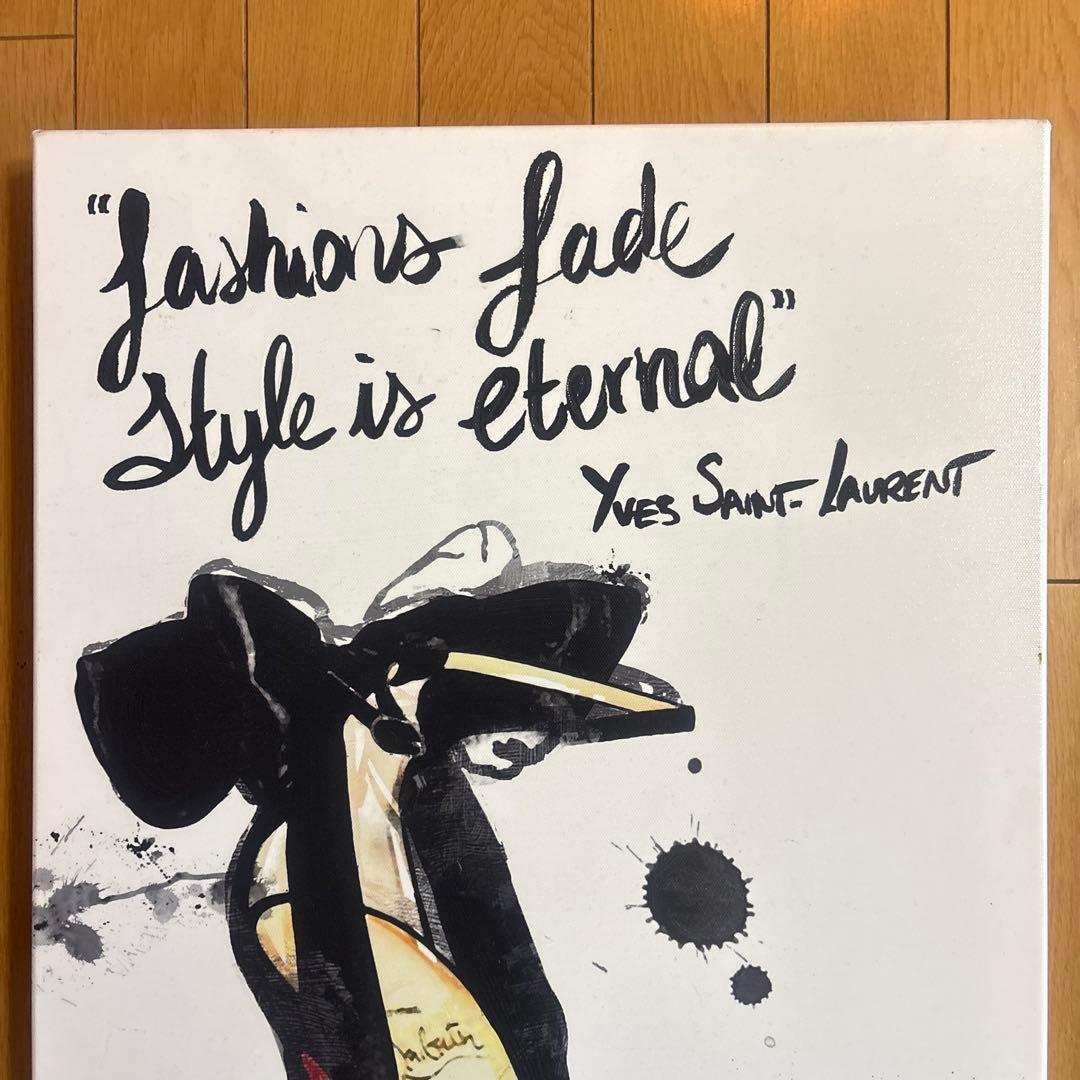 "fashions fade
Style is eternal"
YVES SAINT-LAURENT